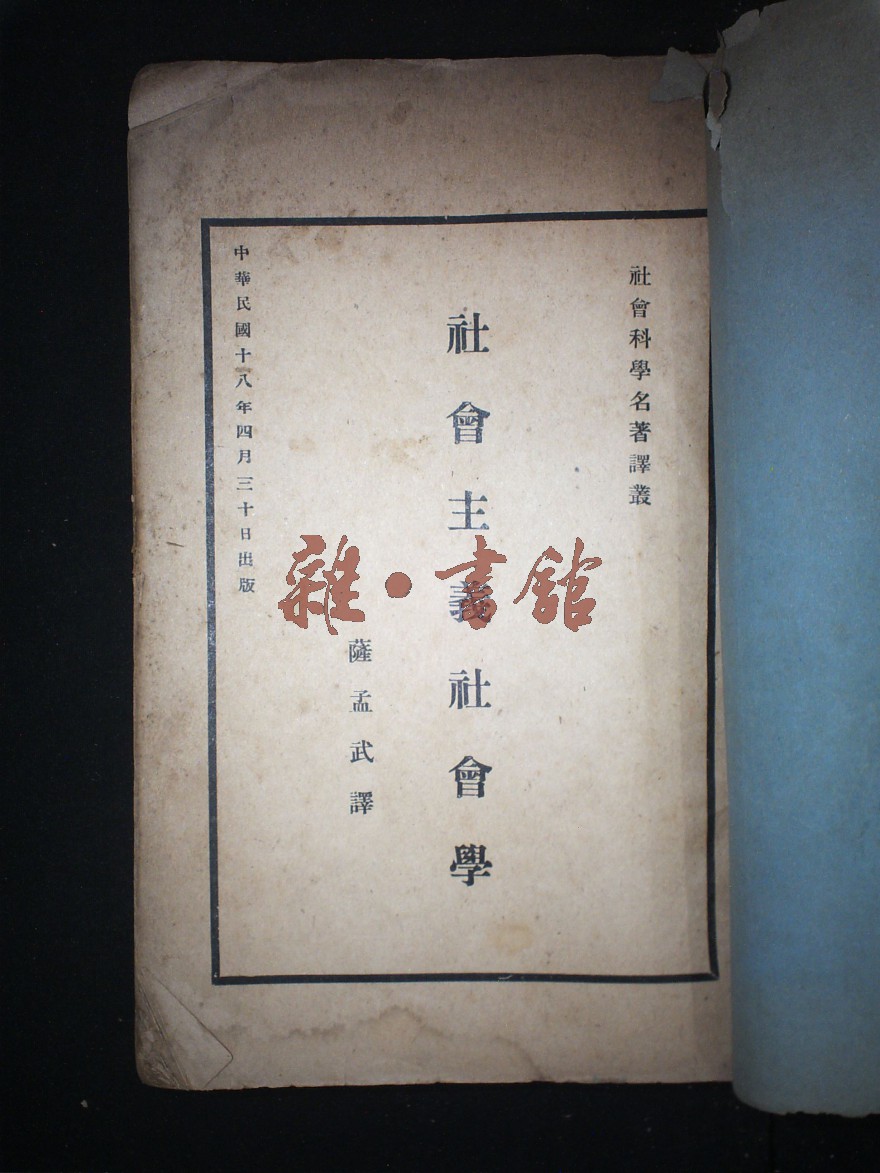 社會科學名著譯叢
社會主義社會學
薩孟武譯
中華民國十八年四月三十日出版
雜·書館